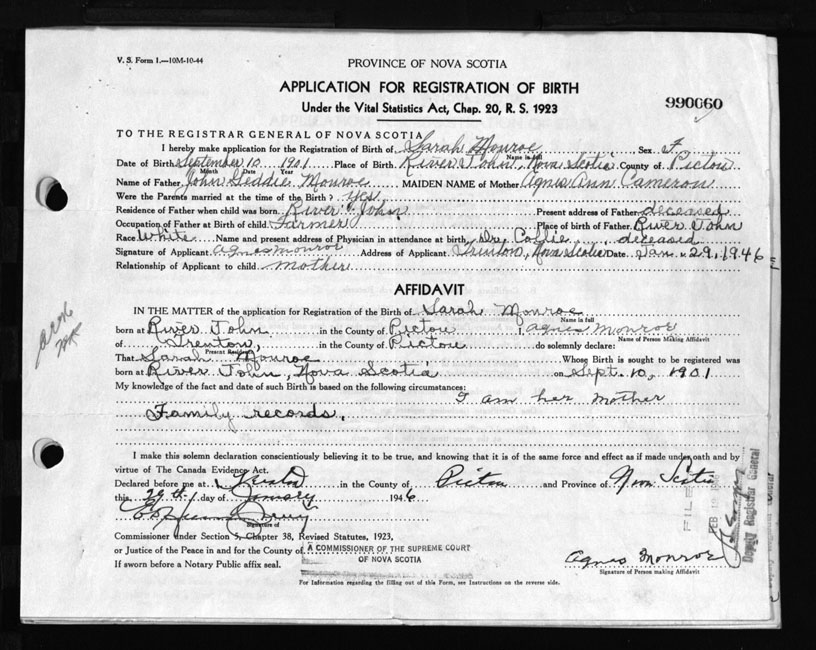 V. S. Form 1.—10M-10-44
PROVINCE OF NOVA SCOTIA
APPLICATION FOR REGISTRATION OF BIRTH
Under the Vital Statistics Act, Chap. 20, R. S. 1923
990060
TO THE REGISTRAR GENERAL OF NOVA SCOTIA
I hereby make application for the Registration of Birth of Sarah Monroe, Sex F
Name in full
Date of Birth September 10 1901 Place of Birth River John, Nova Scotia County of Pictou
Month Day Year
Name of Father John Geddie Monroe MAIDEN NAME of Mother Agnes Ann Cameron
Were the Parents married at the time of the Birth? Yes
Residence of Father when child was born River John Present address of Father deceased
Occupation of Father at Birth of child Farmer Place of birth of Father River John
Race White Name and present address of Physician in attendance at birth Dr. Collie, deceased
Signature of Applicant Agnes Monroe Address of Applicant Trenton, Nova Scotia Date Jan. 29, 1946
Relationship of Applicant to child mother
AFFIDAVIT
IN THE MATTER of the application for Registration of the Birth of Sarah Monroe
Name in full
born at River John in the County of Pictou I, Agnes Monroe
Name of Person Making Affidavit
of Trenton, in the County of Pictou do solemnly declare:
Present Residence
That Sarah Monroe Whose Birth is sought to be registered was
born at River John, Nova Scotia on Sept. 10, 1901
My knowledge of the fact and date of such Birth is based on the following circumstances:
I am her mother
Family records.
I make this solemn declaration conscientiously believing it to be true, and knowing that it is of the same force and effect as if made under oath and by
virtue of The Canada Evidence Act.
Declared before me at in the County of Pictou and Province of Nova Scotia
this 29th day of January 1946
Signature of
Commissioner under Section 5, Chapter 38, Revised Statutes, 1923,
or Justice of the Peace in and for the County of A COMMISSIONER OF THE SUPREME COURT
OF NOVA SCOTIA
If sworn before a Notary Public affix seal.
Agnes Monroe
Signature of Person making Affidavit
For Information regarding the filling out of this Form, see Instructions on the reverse side.
FILED
FEB
Deputy Registrar General